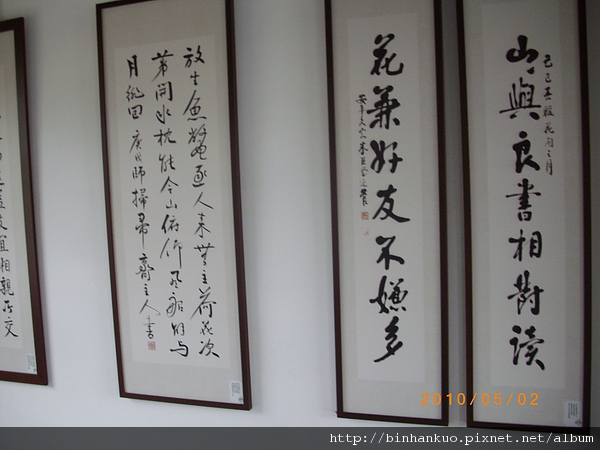 山與良書相對讀
花兼好友不嫌多
放生魚鼈逐人來無主荷花次
第開水枕能令山俯仰風船解與
月徘回 掃帚齋主人書
宜相親
2010/05/02
http://binhankuo.pixnet.net/album